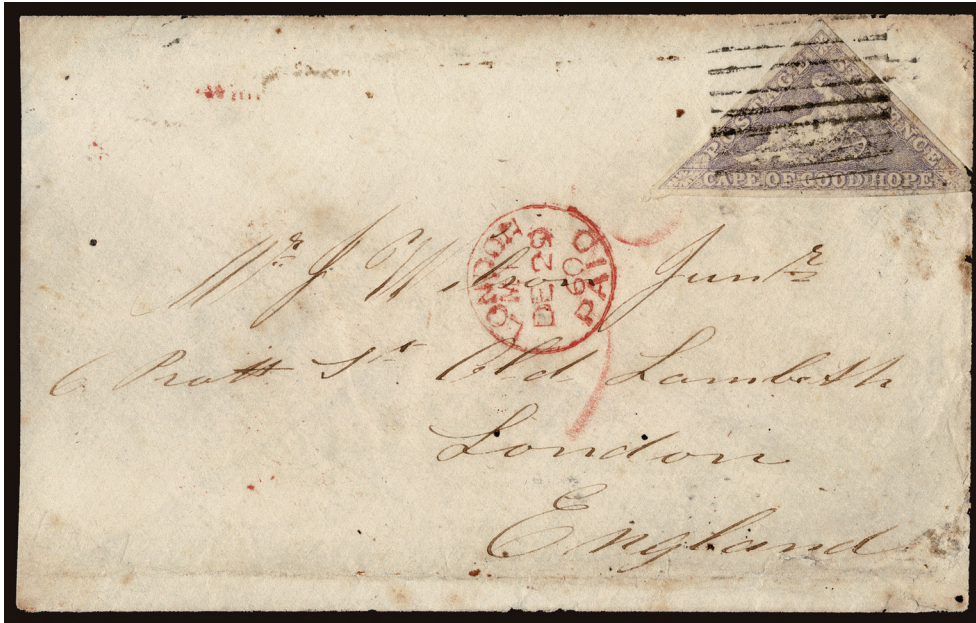 POSTAGE SIX PENCE
CAPE OF GOOD HOPE
LONDON
DE 29
60
PAID
Mr J Wilson Junr
6 Pratt St Old Lambeth
London
England